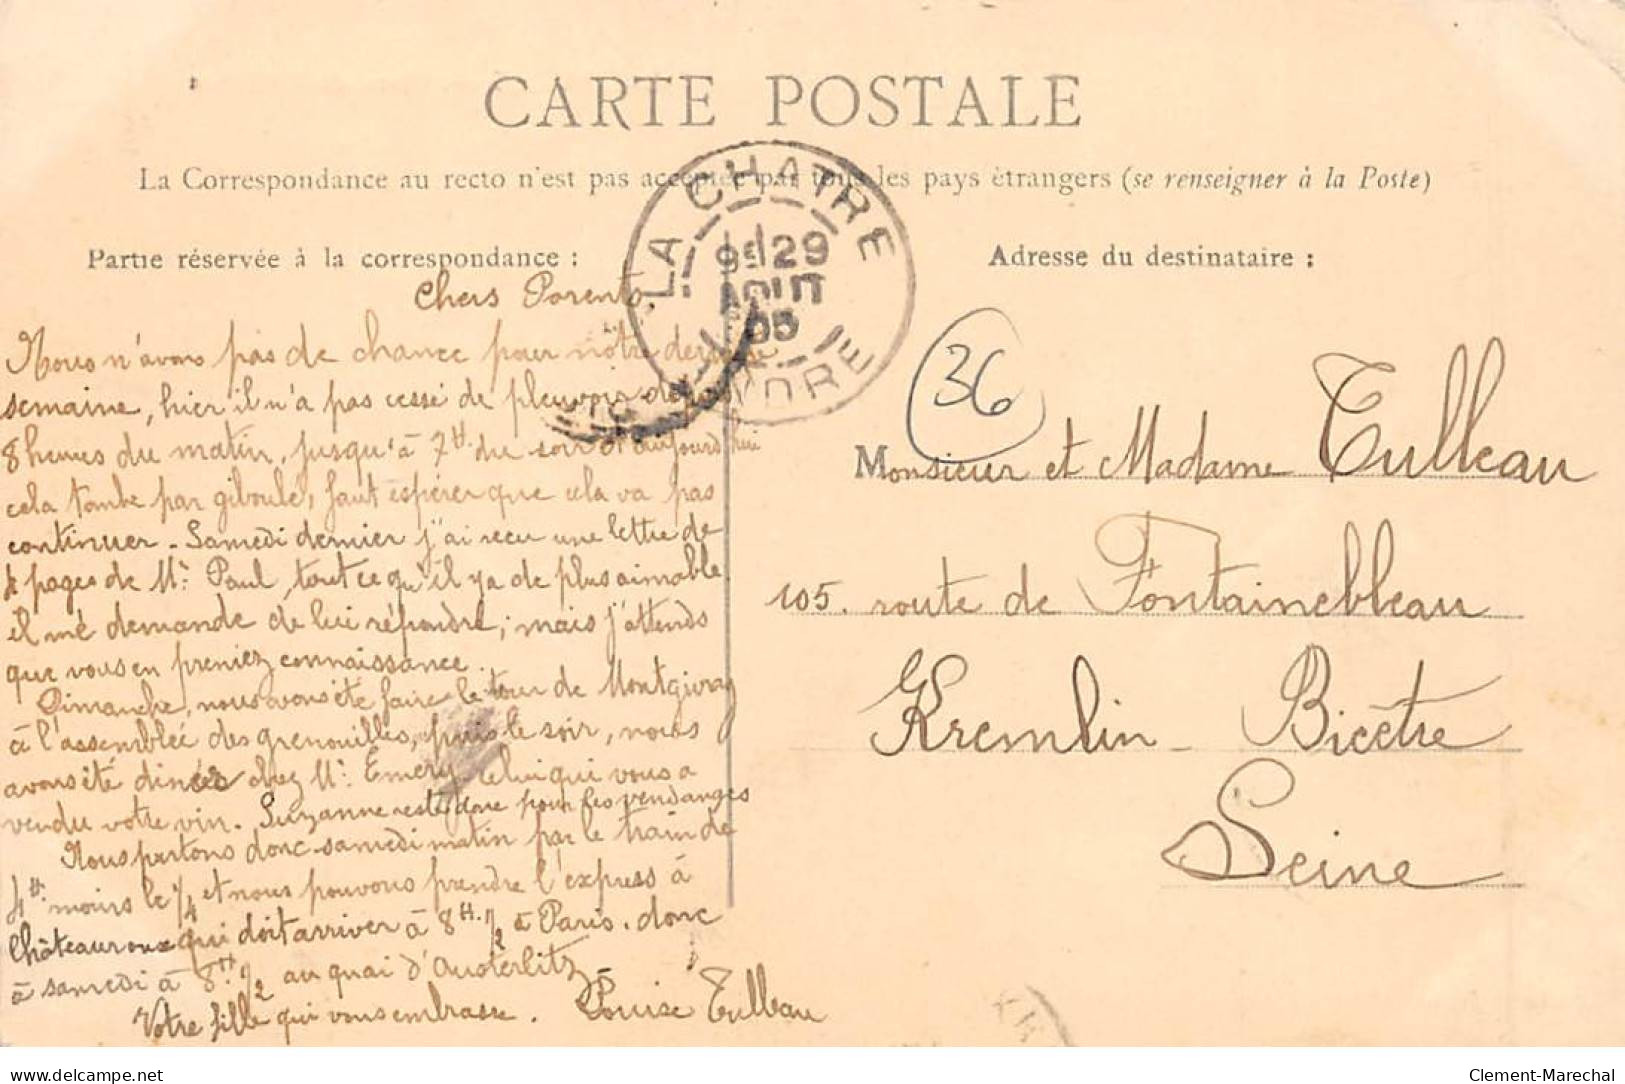 CARTE POSTALE
La Correspondance au recto n'est pas acceptée par tous les pays étrangers (se renseigner à la Poste)
Partie réservée à la correspondance :
Adresse du destinataire :
LA CHATRE
9E 29
AOUT
05
INDRE
36
Chers Parents.
Nous n'avons pas de chance pour notre dernière
semaine, hier il n'a pas cessé de pleuvoir depuis
8 heures du matin, jusqu'à 7H. du soir et aujourd'hui
cela tombe par giboulé, faut espérer que cela va pas
continuer - Samedi dernier j'ai recu une lettre de
4 pages de Mr. Paul, tout ce qu'il y a de plus aimable.
il me demande de lui répondre; mais j'attends
que vous en preniez connaissance.
Dimanche, nous avons été faire le tour de Montgivray
à l'assemblée des grenouilles, puis le soir, nous
avons été diner chez Mr. Emery, celui qui vous a
vendu votre vin. Suzanne reste donc pour les vendanges
Nous partons donc samedi matin par le train de
4H. moins le 1/4 et nous pouvons prendre l'express à
Châteauroux qui doit arriver à 8H. 1/2 à Paris. donc
à samedi à 8H 1/2 au quai d'Austerlitz
Votre fille qui vous embrasse. Louise Tulleau
Monsieur et Madame Tulleau
105. route de Fontainebleau
Kremlin - Bicêtre
Seine
delcampe.net
Clement-Marechal